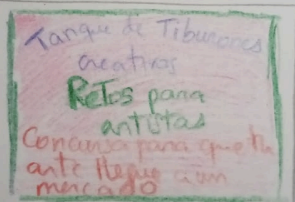 Tanque de Tiburones
creativos
ReTos para
artistas
Concursa para que tu
arte llegue a un
mercado